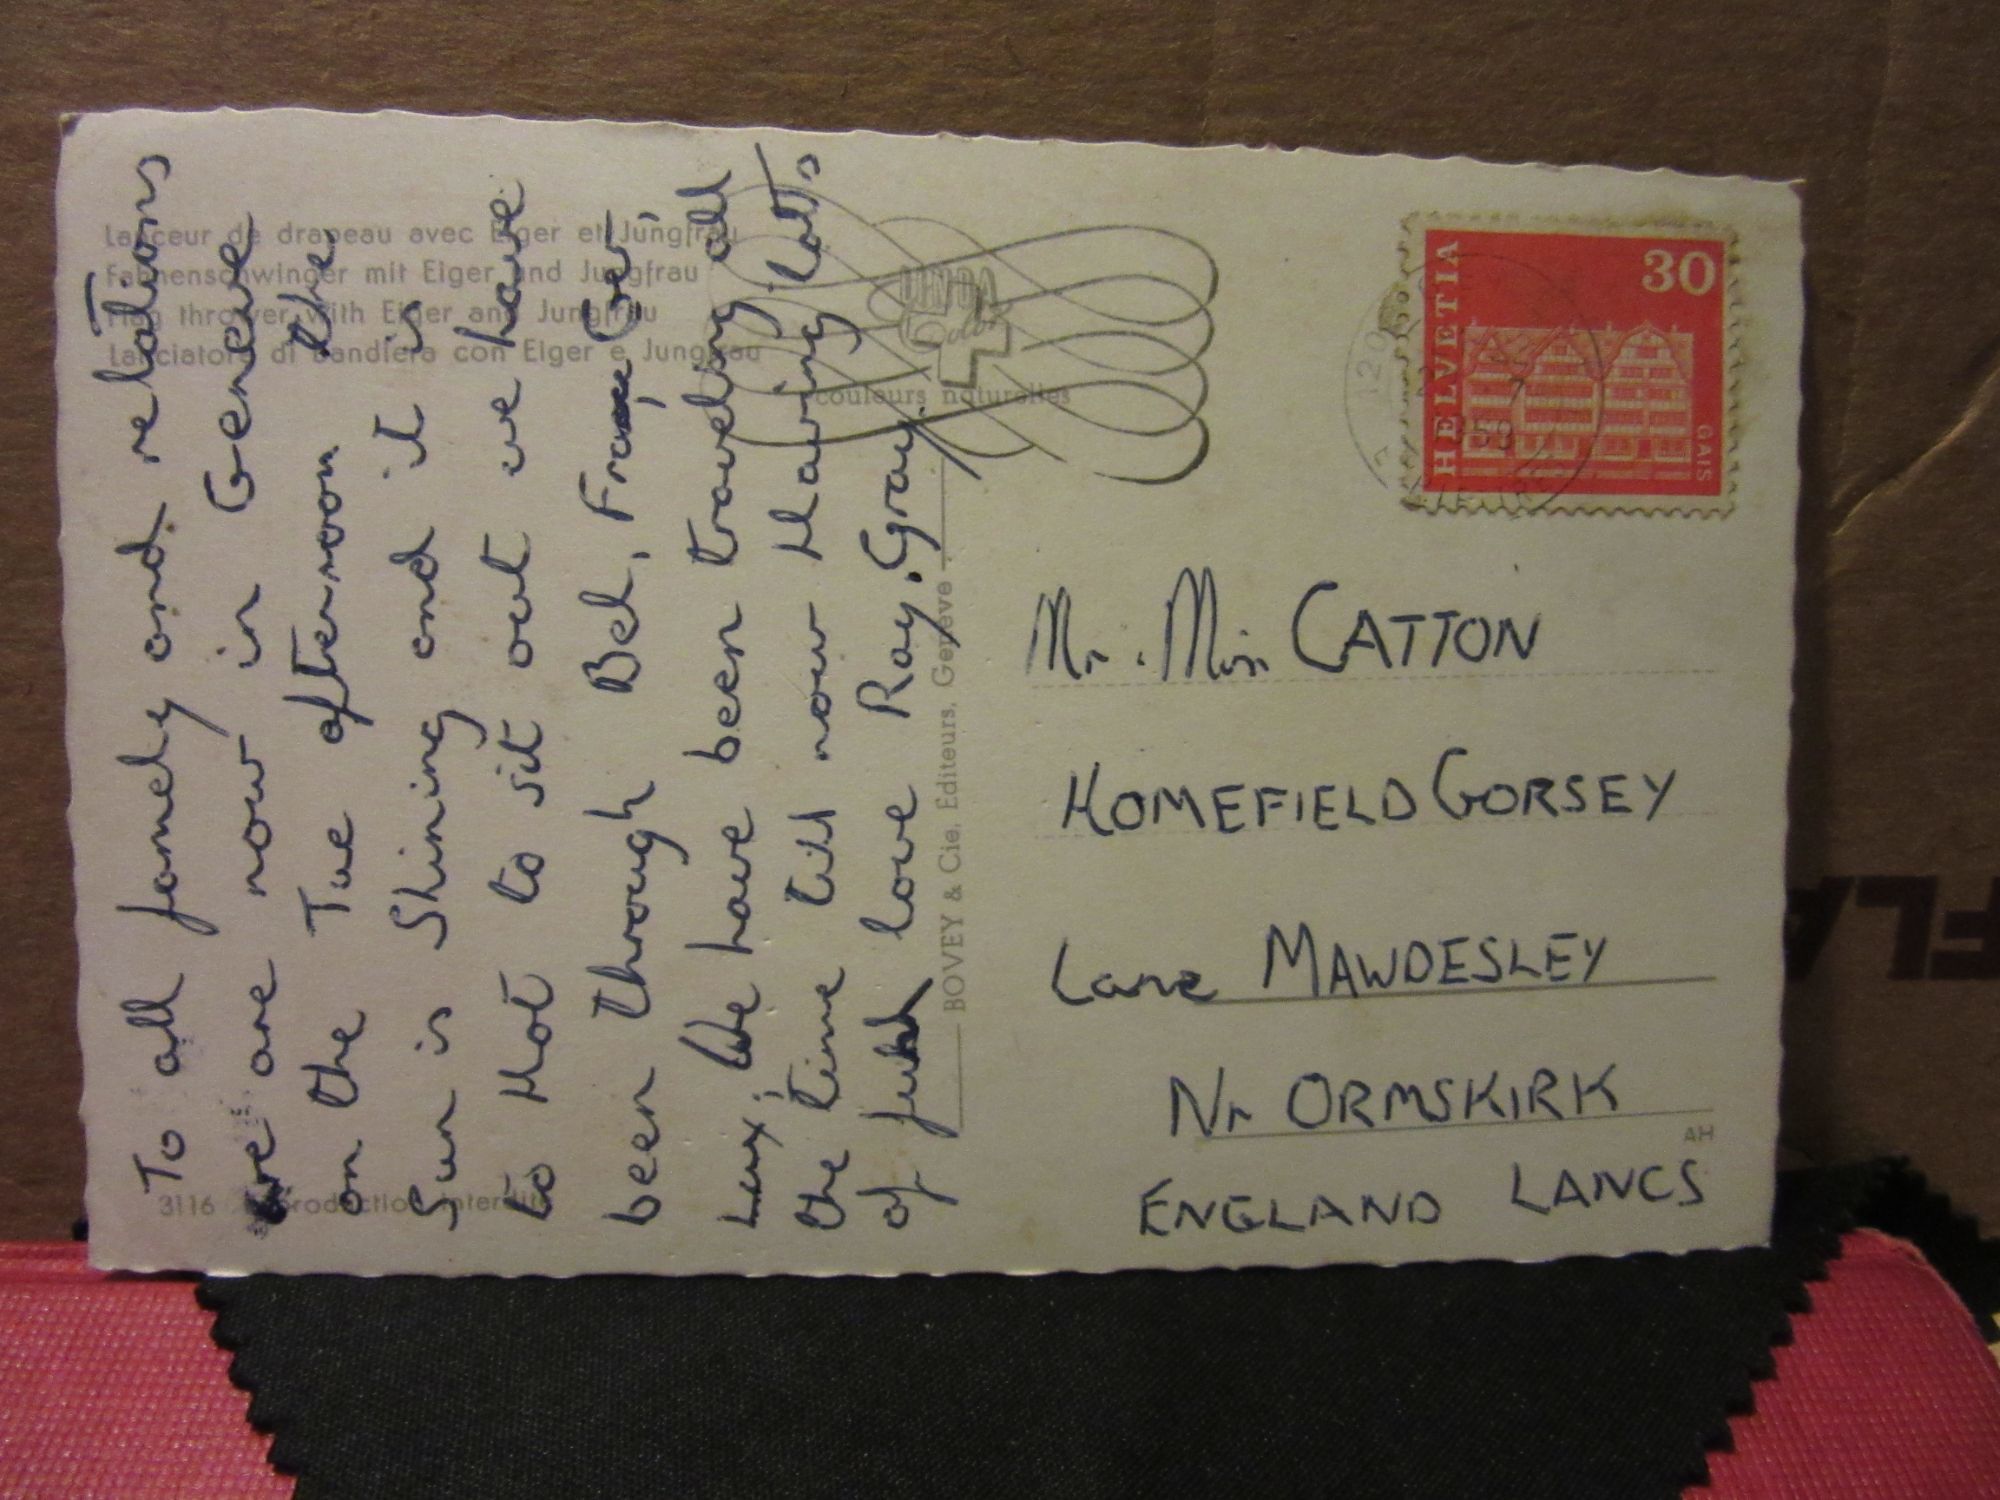 Lanceur de drapeau avec Eiger et Jungfrau
Fahnenschwinger mit Eiger und Jungfrau
Flag thrower with Eiger and Jungfrau
Lanciatore di bandiera con Eiger e Jungfrau
To all famely and relations
we are now in Geneve
on the Tue afternoon the
Sun is Shining and it is
to Hot to sit out we have
been through Bel, France Ger,
Lux, We have been traveling all
the time till now Having lotts
of love Ray. Gray.
3116 Reproduction interdite
BOVEY & Cie, Editeurs, Genève
couleurs naturelles
HELVETIA
30
GAIS
Mr. Mrs. CATTON
HOMEFIELD GORSEY
Lane MAWDESLEY
Nr ORMSKIRK
AH
ENGLAND LANCS
FLA